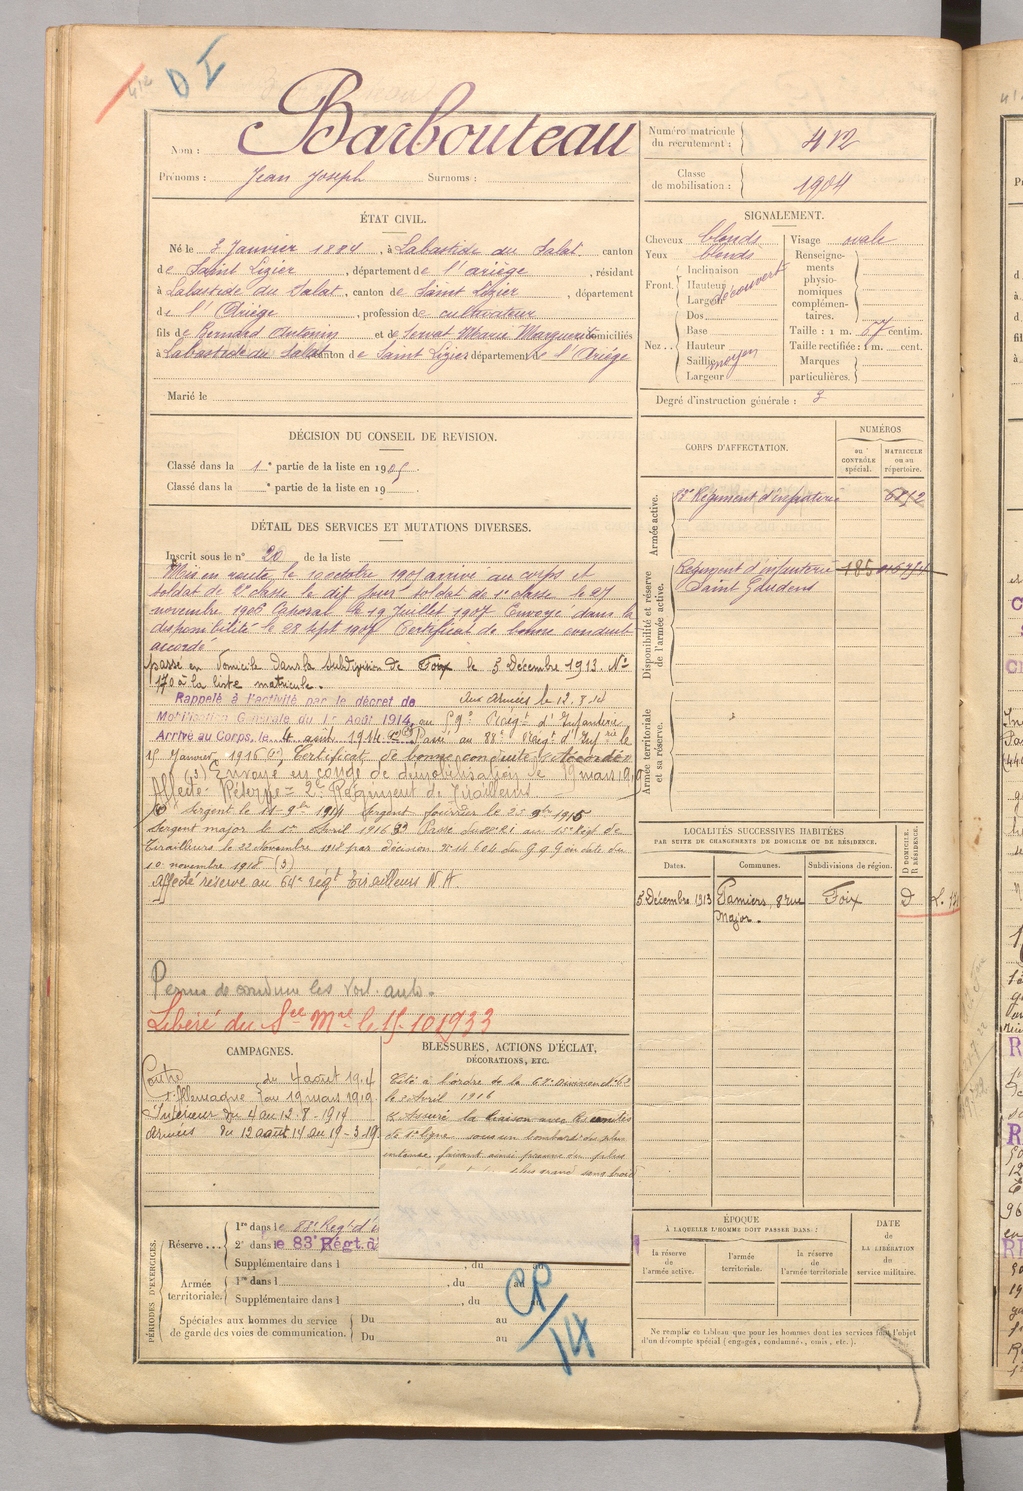 412
D I
Nom : Barbouteau
Prénoms : Jean Joseph Surnoms :
Numéro matricule du recrutement : 412
Classe de mobilisation : 1904
ÉTAT CIVIL.
Né le 3 Janvier 1884, à Labastide du Salat canton
de Saint Lizier, département de l'Ariège, résidant
à Labastide du Salat, canton de Saint Lizier, département
de l'Ariège, profession de cultivateur
fils de Bernard Antonin et de Servat Marie Marguerite domiciliés
à Labastide du Salat canton de Saint Lizier département de l'Ariège
Marié le
SIGNALEMENT.
Cheveux blonds
Yeux blonds
Front. Inclinaison
Hauteur
Largeur découvert
Nez.. Dos
Base
Hauteur
Saillie moyen
Largeur
Visage ovale
Renseignements physionomiques complémentaires.
Taille : 1 m. 67 centim.
Taille rectifiée : 1 m. cent.
Marques particulières.
Degré d'instruction générale : 3
DÉCISION DU CONSEIL DE REVISION.
Classé dans la 1e partie de la liste en 1905.
Classé dans la e partie de la liste en 19
DÉTAIL DES SERVICES ET MUTATIONS DIVERSES.
Inscrit sous le n° 20 de la liste
Mis en route le 10 octobre 1905 arrivé au corps et
soldat de 2e classe le dit jour soldat de 1e classe le 27
novembre 1906 Caporal le 19 Juillet 1907 Envoyé dans la
disponibilité le 28 sept 1907 Certificat de bonne conduite
accordé
passé en domicile dans la subdivision de Foix le 5 Décembre 1913. N°
170 à la liste matricule.
Rappelé à l'activité par le décret de Aux Armées le 12.8.14
Mobilisation Générale du 1er Août 1914, au 59e Régt d'Infanterie
Arrivé au Corps, le 4 août 1914 Passé au 88e Régt d'Infrie le
15 Janvier 1916 Certificat de bonne conduite "Accordé"
(3) Envoyé en congé de démobilisation le 19 mars 1919
Affecté Réserve 2e Régiment de Tirailleurs
Sergent le 11 9bre 1914 Sergent fourrier le 25 9bre 1915
Sergent major le 1er Avril 1916 Passé du au 15e Régt de
Tirailleurs le 22 novembre 1918 par décision N° 14604 du G Q G en date du
10 novembre 1918 (3)
Affecté réserve au 64e régt Tirailleurs N A.
Permis de conduire les Voit. auto.
Libéré du Sce Mre le 15-10-1933
CORPS D'AFFECTATION.
NUMÉROS
au CONTRÔLE spécial.
MATRICULE ou au répertoire.
Armée active.
88e Régiment d'Infanterie
Disponibilité et réserve de l'armée active.
Régiment d'infanterie 185
Saint Gaudens
Armée territoriale et sa réserve.
LOCALITÉS SUCCESSIVES HABITÉES
PAR SUITE DE CHANGEMENTS DE DOMICILE OU DE RÉSIDENCE.
Dates. Communes. Subdivisions de région. D DOMICILE. R RÉSIDENCE.
5 Décembre 1913 Pamiers, 8 rue Major. Foix D
CAMPAGNES.
Contre l'Allemagne du 4 août 1914
au 19 mars 1919
Intérieur du 4 au 12-8-1914
Armées du 12 août 14 au 19-3-19
BLESSURES, ACTIONS D'ÉCLAT,
DÉCORATIONS, ETC.
Cité à l'ordre de la Division
le 2 Avril 1916
Assuré la liaison avec les unités
de 1e ligne sous un bombardt des plus
intense faisant ainsi preuve du plus
PÉRIODES D'EXERCICES.
Réserve ... 1re dans le 88e Régt d'
2e dans le 83e Régt. d'
Supplémentaire dans l , du au
Armée territoriale. 1re dans l , du au
Supplémentaire dans l , du au
Spéciales aux hommes du service de garde des voies de communication. Du au
Du au
CP/14
ÉPOQUE
À LAQUELLE L'HOMME DOIT PASSER DANS :
la réserve de l'armée active.
l'armée territoriale.
la réserve de l'armée territoriale
DATE de LA LIBÉRATION du service militaire.
Ne remplir ce tableau que pour les hommes dont les services font l'objet
d'un décompte spécial (engagés, condamnés, omis, etc.).